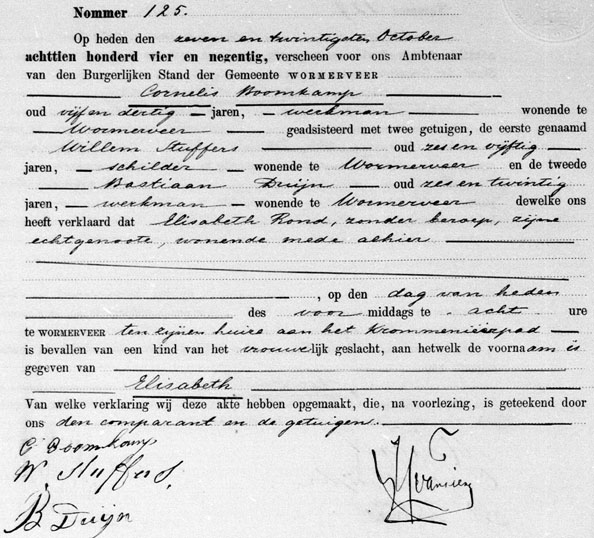 Nummer 125.
Op heden den zeven en twintigsten October
achttien honderd vier en negentig, verscheen voor ons Ambtenaar
van den Burgerlijken Stand der Gemeente WORMERVEER
Cornelis Boomkamp
oud vijf en dertig jaren, werkman wonende te
Wormerveer geadsisteerd met twee getuigen, de eerste genaamd
Willem Stuffers oud zes en vijftig
jaren, schilder wonende te Wormerveer en de tweede
Bastiaan Duijn oud zes en twintig
jaren, werkman wonende te Wormerveer dewelke ons
heeft verklaard dat Elisabeth Rond, zonder beroep, zijne
echtgenoote, wonende mede alhier
, op den dag van heden
des voor middags te acht ure
te WORMERVEER ten zijnen huize aan het Krommeniërpad
is bevallen van een kind van het vrouwelijk geslacht, aan hetwelk de voornaam is
gegeven van
Elisabeth
Van welke verklaring wij deze akte hebben opgemaakt, die, na voorlezing, is geteekend door
ons den comparant en de getuigen.
C Boomkamp
W. Stuffers.
B Duijn